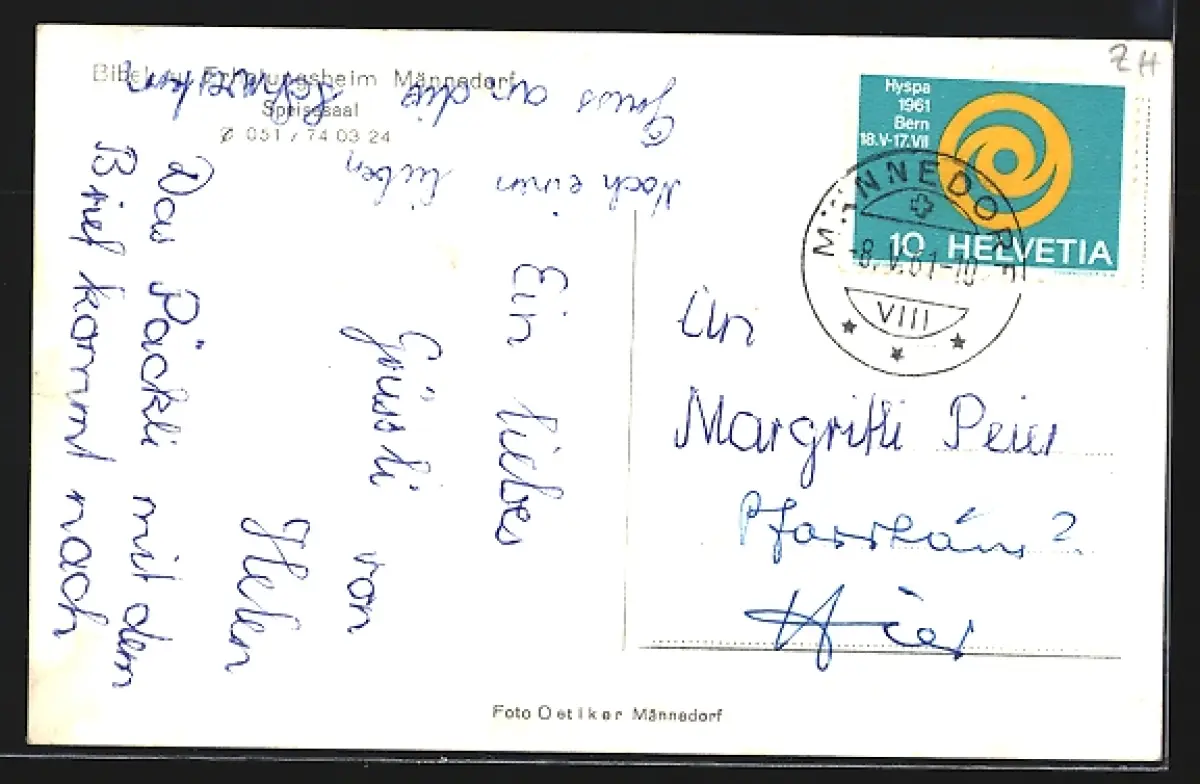 ZH
Bibel- u. Erholungsheim Männedorf
Speisesaal
051 / 74 03 24
Hyspa
1961
Bern
18.V-17.VII
10 HELVETIA
MÄNNEDORF
-8.V.61-10
VIII
Ein liebes
Grüssli
von
Helen
Das Päckli mit dem
Brief kommt nach
Noch einen lieben
Gruss an die Schwestern
An
Margritli Peier
Pfarrhaus ?
Hier
Foto Oetiker Männedorf